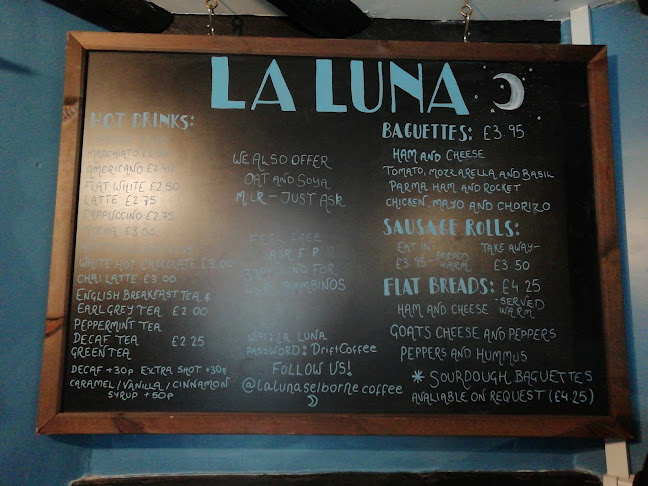 LA LUNA
HOT DRINKS:
MACCHIATO
AMERICANO £2.40
FLAT WHITE £2.50
LATTE £2.75
CAPPUCCINO £2.75
MOCHA £3.00
WHITE HOT CHOCOLATE £3.00
CHAI LATTE £3.00
ENGLISH BREAKFAST TEA &
EARL GREY TEA £2.00
PEPPERMINT TEA
DECAF TEA £2.25
GREEN TEA
DECAF +30p EXTRA SHOT +30p
CARAMEL/VANILLA/CINNAMON
SYRUP +50p
WE ALSO OFFER
OAT AND SOYA
MILK - JUST ASK
FEEL FREE
ASK FOR
FOR
BAMBINOS
WIFI: LA LUNA
PASSWORD: DriftCoffee
FOLLOW US!
@lalunaselbornecoffee
BAGUETTES: £3.95
HAM AND CHEESE
TOMATO, MOZZARELLA AND BASIL
PARMA HAM AND ROCKET
CHICKEN, MAYO AND CHORIZO
SAUSAGE ROLLS:
EAT IN: TAKE AWAY-
£3.95 - SERVED WARM £3.50
FLAT BREADS: £4.25
HAM AND CHEESE - SERVED WARM
GOATS CHEESE AND PEPPERS
PEPPERS AND HUMMUS
* SOURDOUGH BAGUETTES
AVALIABLE ON REQUEST (£4.25)